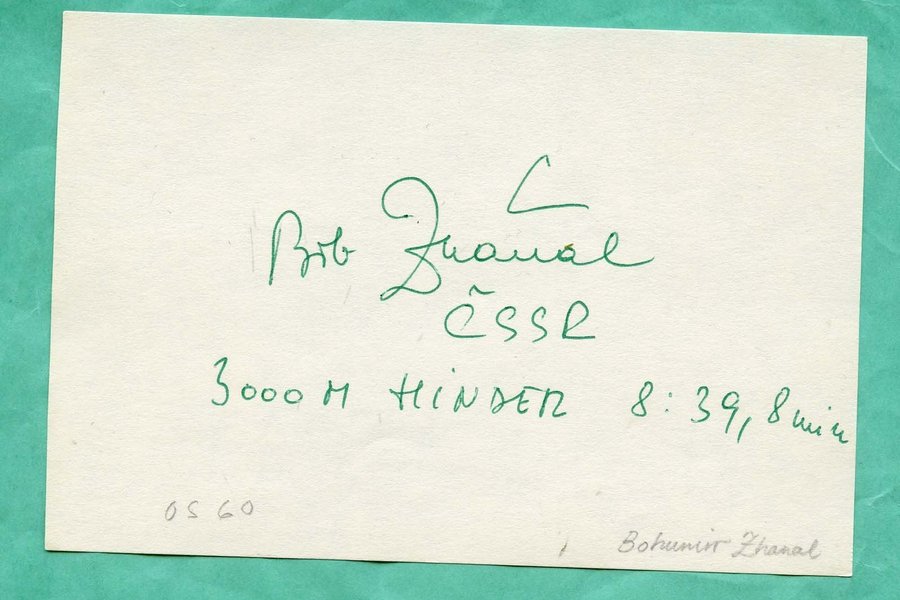 Bob Zháňal
ČSSR
3000 M HINDER 8:39,8 min
OS 60
Bohumír Zhanal